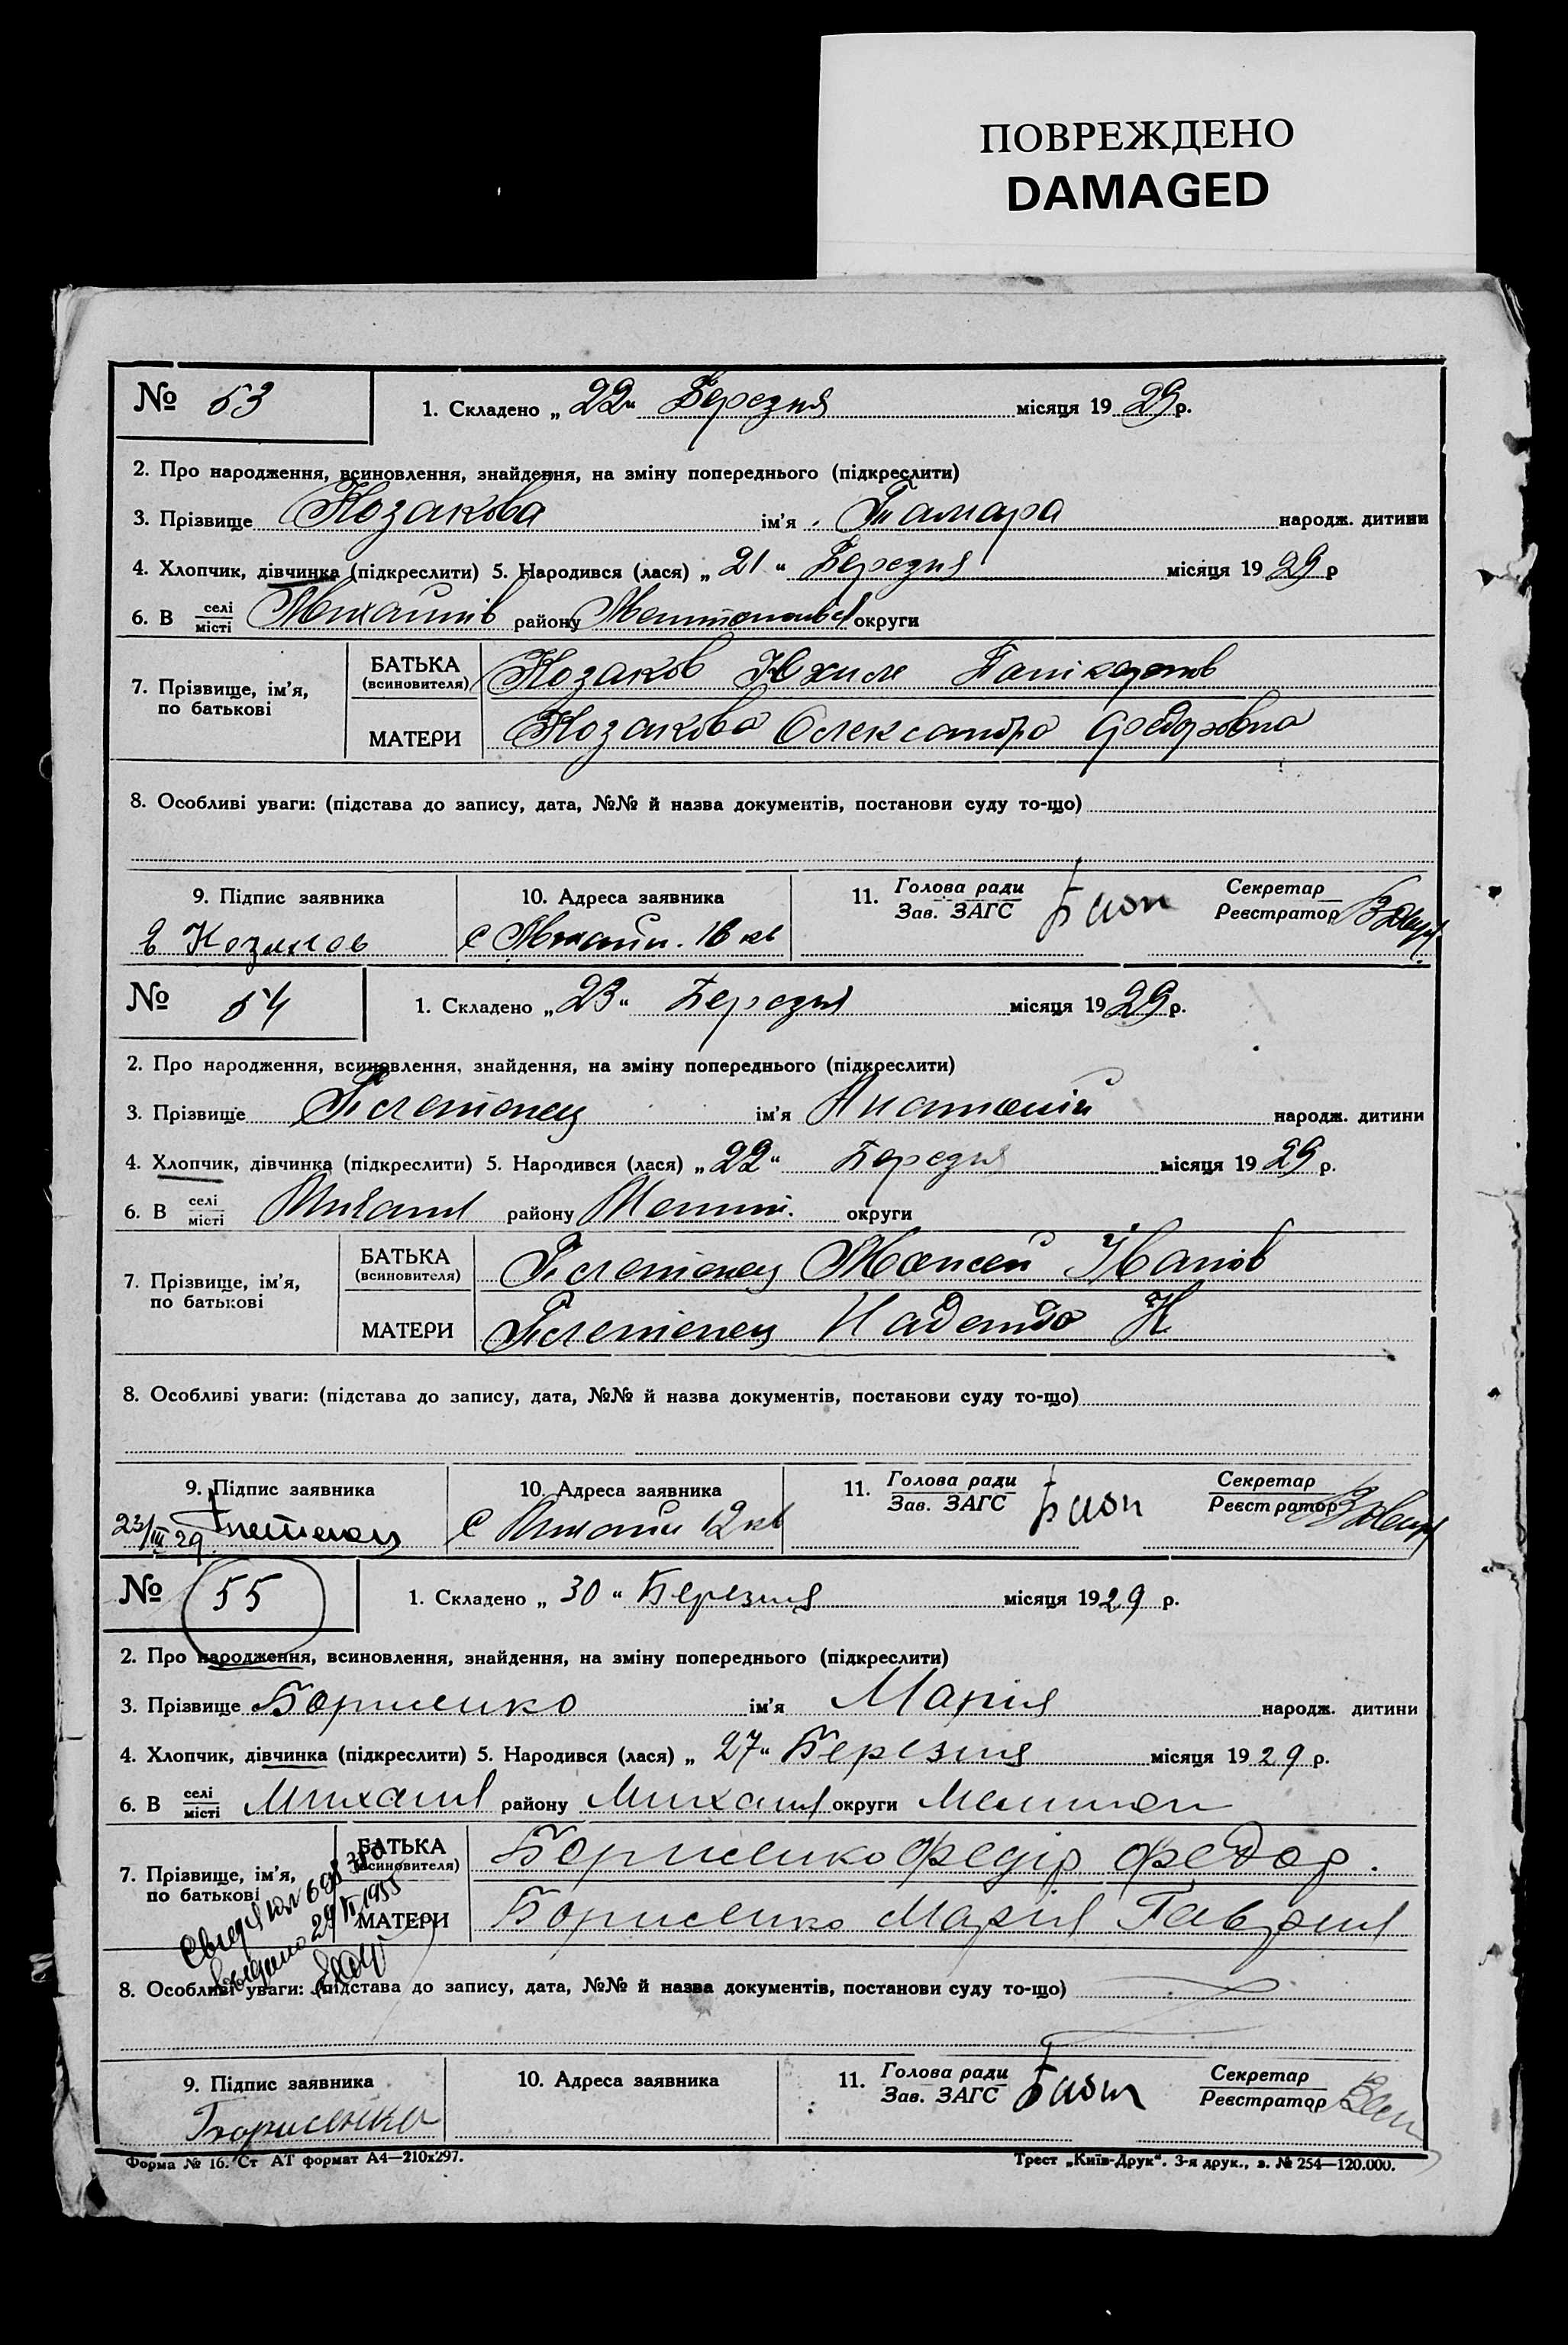 ПОВРЕЖДЕНО
DAMAGED
№ 53
1. Складено „ 22 “ Березня місяця 19 29 р.
2. Про народження, всиновлення, знайдення, на зміну попереднього (підкреслити)
3. Прізвище Козакова ім'я Тамара народж. дитини
4. Хлопчик, дівчинка (підкреслити) 5. Народився (лася) „ 21 “ Березня місяця 19 29 р
6. В селі місті району округи
7. Прізвище, ім'я, по батькові
БАТЬКА (всиновителя) Козаков
МАТЕРИ Козакова Олександра Федоровна
8. Особливі уваги: (підстава до запису, дата, №№ й назва документів, постанови суду то-що)
9. Підпис заявника 10. Адреса заявника 11. Голова ради Зав. ЗАГС Секретар Реєстратор
Козаков с 16 кв
№ 54
1. Складено „ 23 “ Березня місяця 19 29 р.
2. Про народження, всиновлення, знайдення, на зміну попереднього (підкреслити)
3. Прізвище ім'я народж. дитини
4. Хлопчик, дівчинка (підкреслити) 5. Народився (лася) „ 22 “ Березня місяця 19 29 р.
6. В селі місті району округи
7. Прізвище, ім'я, по батькові
БАТЬКА (всиновителя) Іванов
МАТЕРИ Н
8. Особливі уваги: (підстава до запису, дата, №№ й назва документів, постанови суду то-що)
9. Підпис заявника 10. Адреса заявника 11. Голова ради Зав. ЗАГС Секретар Реєстратор
23/III 29 с 12 кв
№ 55
1. Складено „ 30 “ Березня місяця 19 29 р.
2. Про народження, всиновлення, знайдення, на зміну попереднього (підкреслити)
3. Прізвище Борисенко ім'я Марія народж. дитини
4. Хлопчик, дівчинка (підкреслити) 5. Народився (лася) „ 27 “ Березня місяця 19 29 р.
6. В селі місті Михайл району Михайл округи Мелитоп
7. Прізвище, ім'я, по батькові
БАТЬКА (всиновителя) Борисенко Федір Федор.
МАТЕРИ Борисенко Марія Гаврил
8. Особливі уваги: (підстава до запису, дата, №№ й назва документів, постанови суду то-що)
9. Підпис заявника 10. Адреса заявника 11. Голова ради Зав. ЗАГС Секретар Реєстратор
Борисенко
Форма № 16. Ст АТ формат А4—210x297. Трест „Київ-Друк“. 3-я друк., з. № 254—120.000.